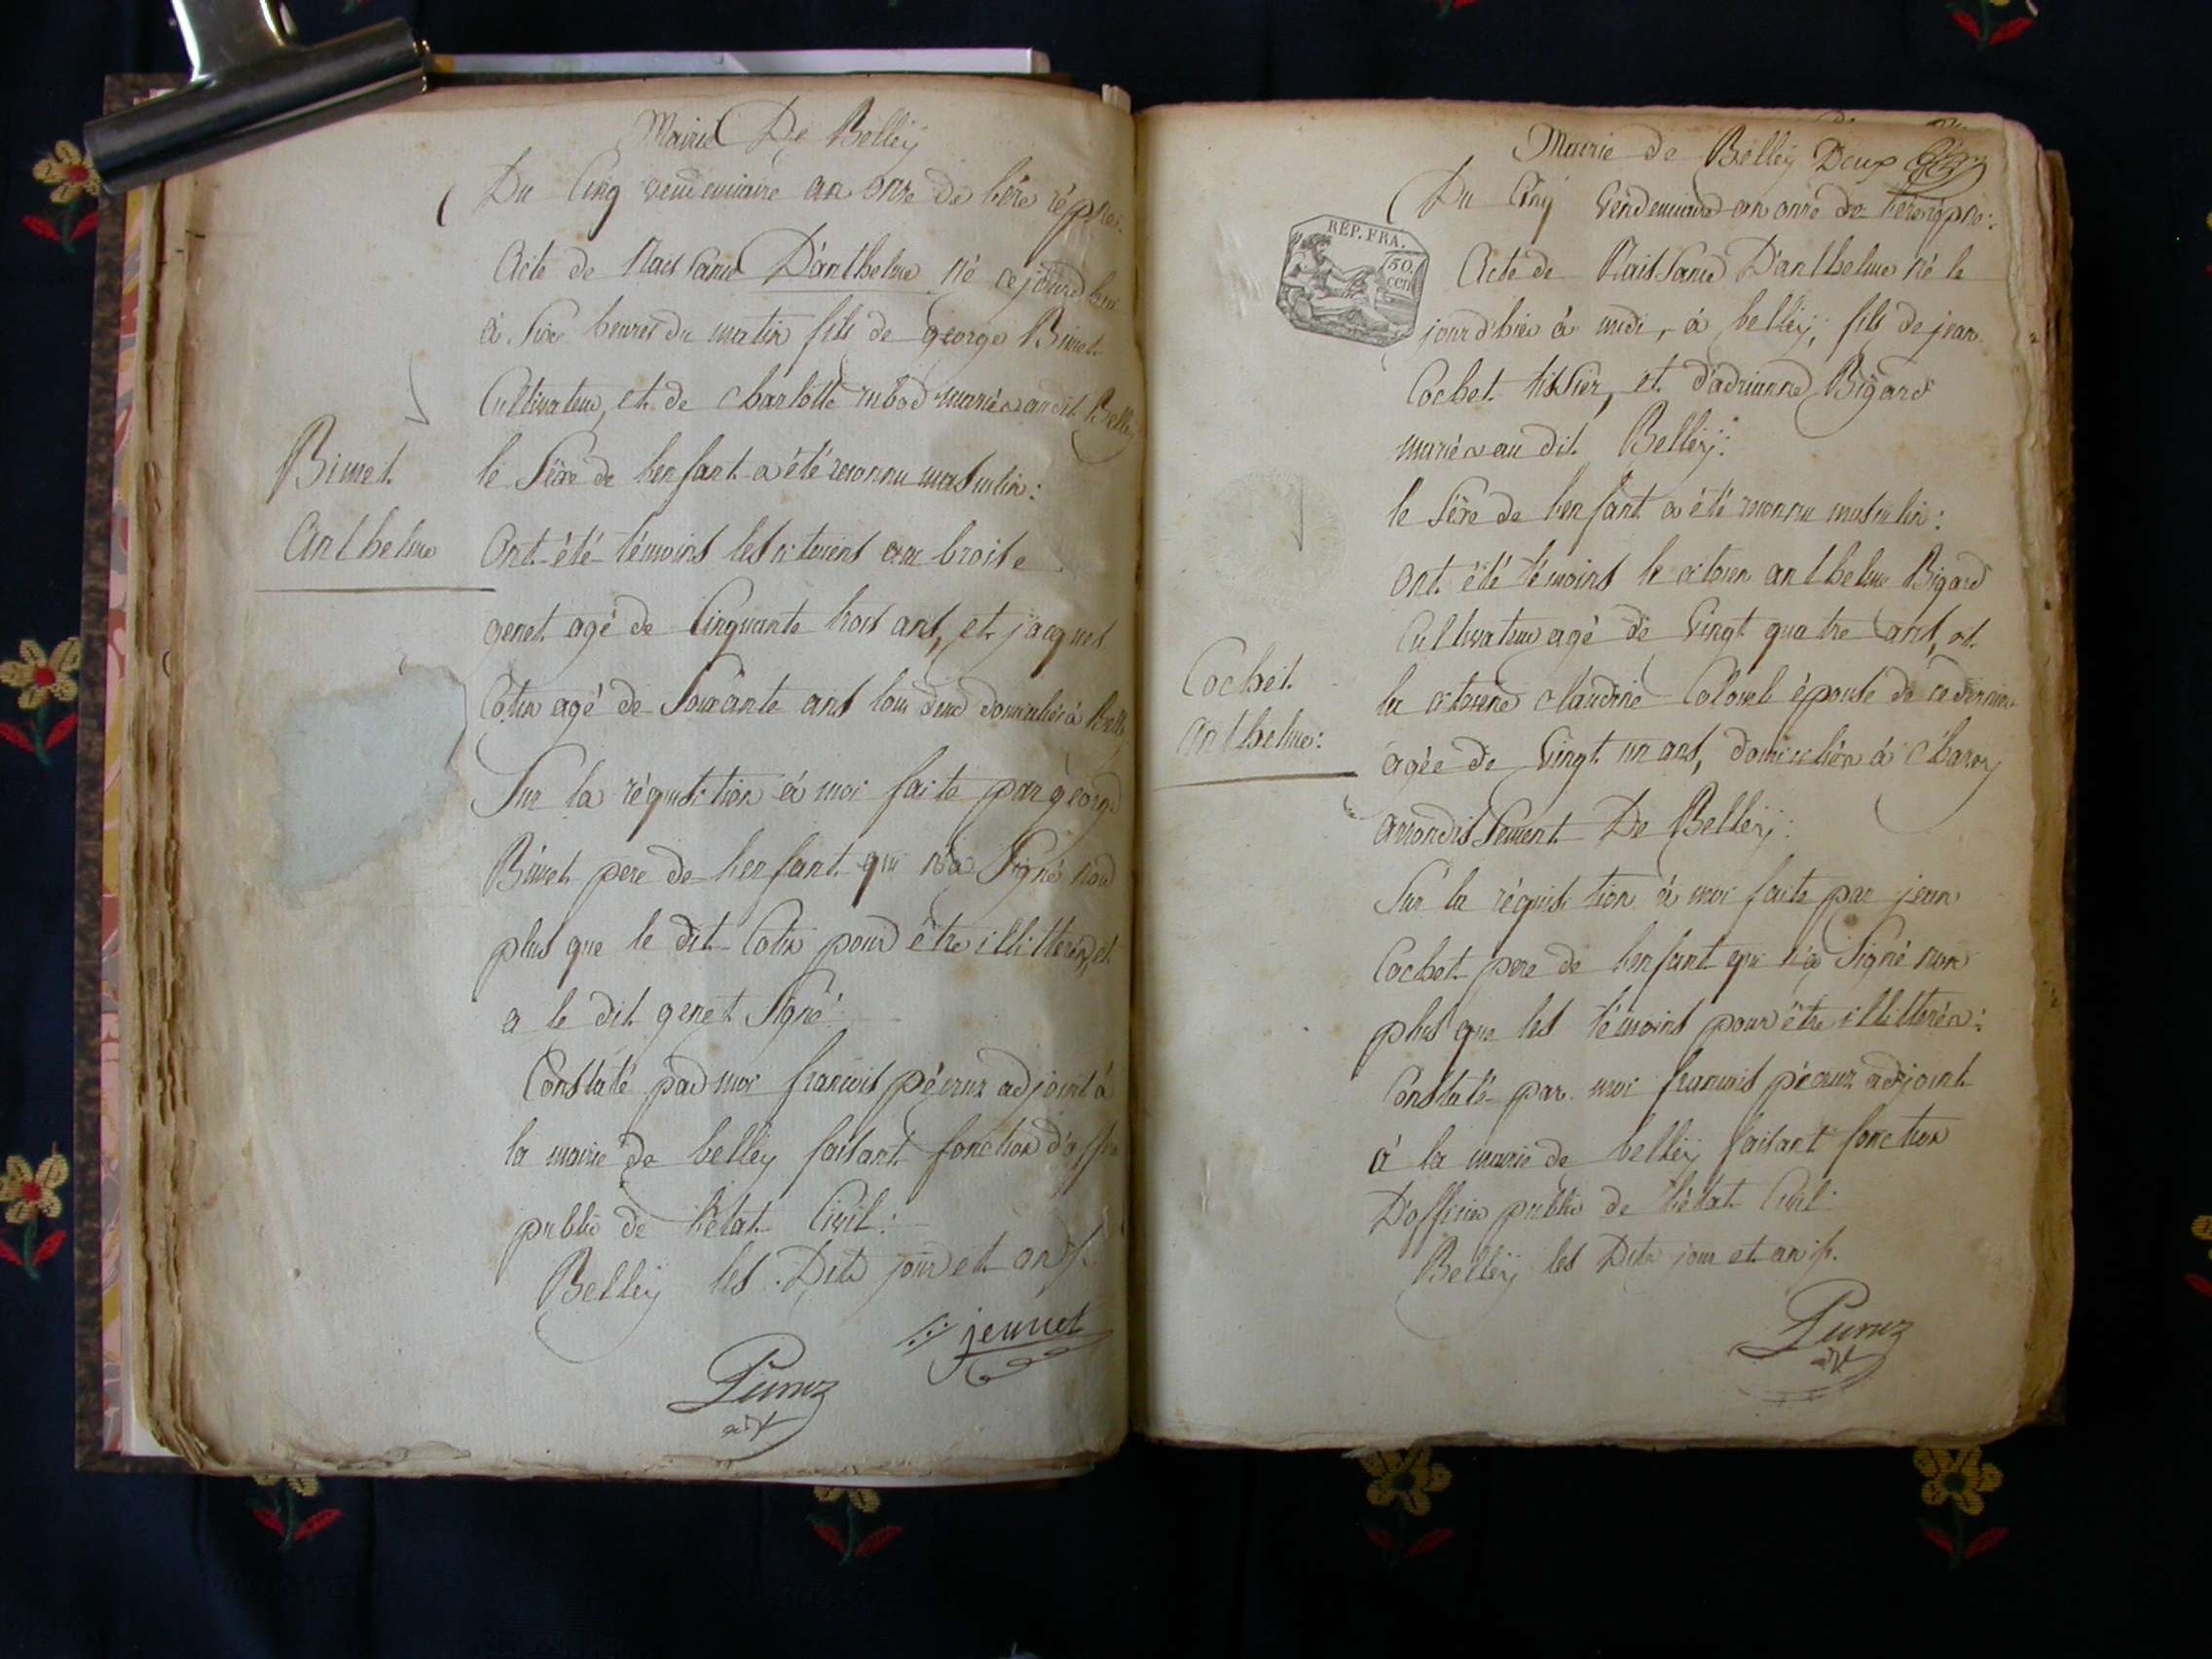 Mairie De Belley
Du Cinq vendemiaire an onze de l'ère répne:
Acte de Naissance D'anthelme né ce jourd'hui
à Six heures du matin fils de george Bimet
Cultivateur, et de charlotte rubod mariés au dit Belley
le Séxe de l'enfant a été reconnu masculin:
Ont été témoins les citoiens ambroise
genet agé de Cinquante trois ans, et jacques
Cotin agé de Soixante ans tous deux domiciliés à Belley
Sur la réquisition à moi faite par george
Bimet pere de l'enfant qui n'a Signé non
plus que le dit Cotin pour être illitterés, et
a le dit genet Signé:
Constaté par moi francois péeruz adjoint à
la mairie de belley faisant fonction d'officier
public de l'état Civil:
Belley les Dits jour et an
jennet
Bimet
Anthelme
Mairie de Belley Deux
Du Cinq Vendemiaire an onze de l'ere répne:
RÉP. FRA.
50.
cen
Acte de Naissance D'anthelme né le
jour d'hier à midi, à belley, fils de jean
Cochet tissier, et d'adrianne Bigard
mariés au dit Belley:
le Séxe de l'enfant a été reconnu masculin:
Ont été témoins le citoien anthelme Bigard
Cultivateur agé de Vingt quatre ans, et
la citoiene claudine épouse de ce dernier
agée de Vingt un ans, domiciliés à
arrondissement De Belley:
Sur la réquisition à moi faite par jean
Cochet pere de l'enfant qui n'a Signé non
plus que les témoins pour être illitterés:
Constaté par moi francois péeruz adjoint
à la mairie de belley faisant fonction
D'officier public de l'état Civil:
Belley les Dits jour et an
Cochet
Anthelme: